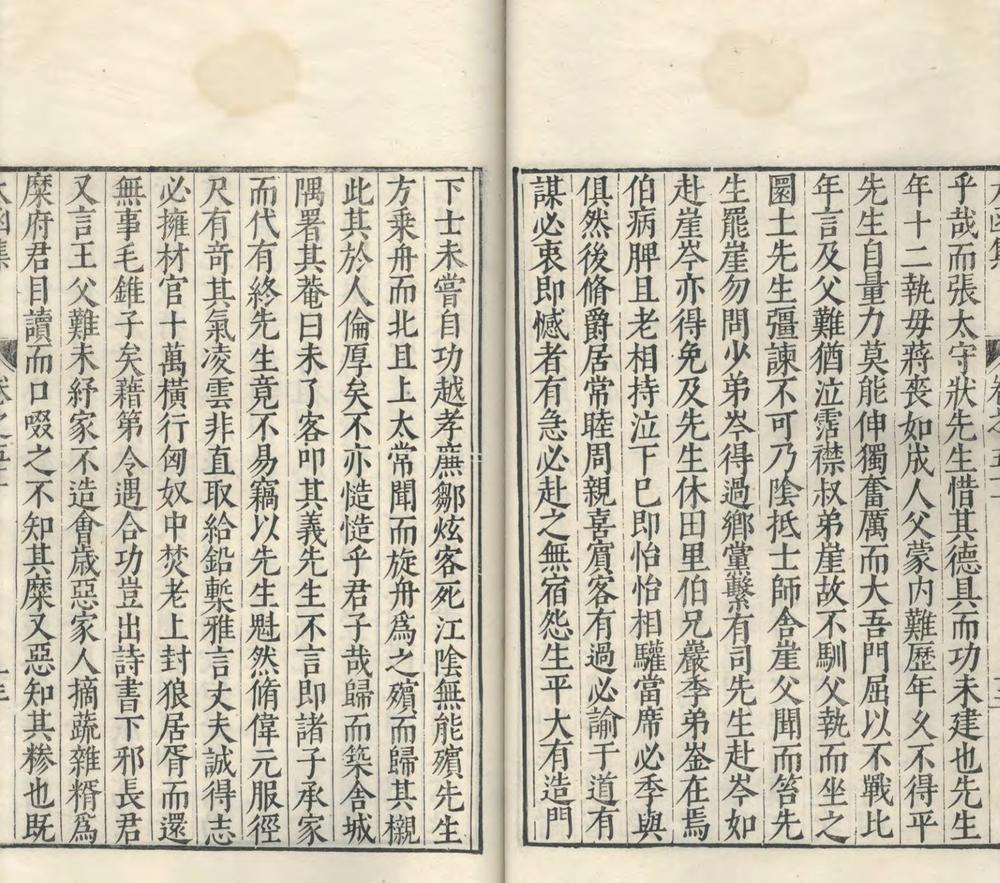 乎哉而張太守狀先生惜其德具而功未建也先生
年十二執毋蔣喪如成人父蒙内難歷年久不得平
先生自量力莫能伸獨奮厲而大吾門屈以不戰比
年言及父難猶泣霑襟叔弟崖故不馴父執而坐之
圜土先生彊諫不可乃陰抵士師舍崖父聞而笞先
生罷崖勿問少弟岑得過鄉黨繫有司先生赴岑如
赴崖岑亦得免及先生休田里伯兄巖季弟崟在焉
伯病脾且老相持泣下巳即怡怡相驩當席必季與
俱然後脩爵居常睦周親喜賓客有過必諭于道有
謀必衷即憾者有急必赴之無宿怨生平大有造門
下士未嘗自功越孝廉鄒炫客死江陰無能殯先生
方乗舟而北且上太常聞而旋舟爲之殯而歸其櫬
此其於人倫厚矣不亦慥慥乎君子哉歸而築舍城
隅署其菴曰未了客叩其義先生不言即諸子承家
而代有終先生竟不易竊以先生魁然脩偉元服徑
尺有竒其氣凌雲非直取給鉛槧雅言丈夫誠得志
必擁材官十萬橫行匈奴中焚老上封狼居胥而還
無事毛錐子矣藉第令遇合功豈出詩書下邪長君
又言王父難未紓家不造會歳惡家人摘蔬雜糈爲
糜府君目讀而口啜之不知其糜又惡知其糝也既